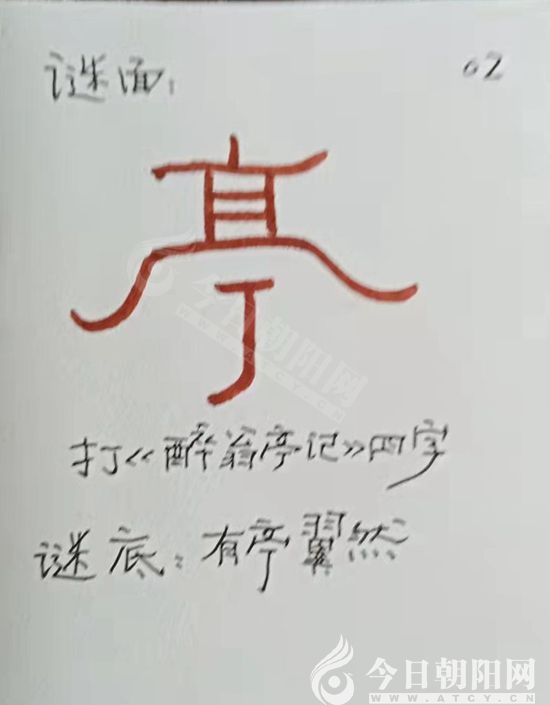 谜面：
62
亭
打《醉翁亭记》四字
谜底：有亭翼然
今日朝阳网
WWW.ATCY.CN
今日朝阳网
WWW.ATCY.CN